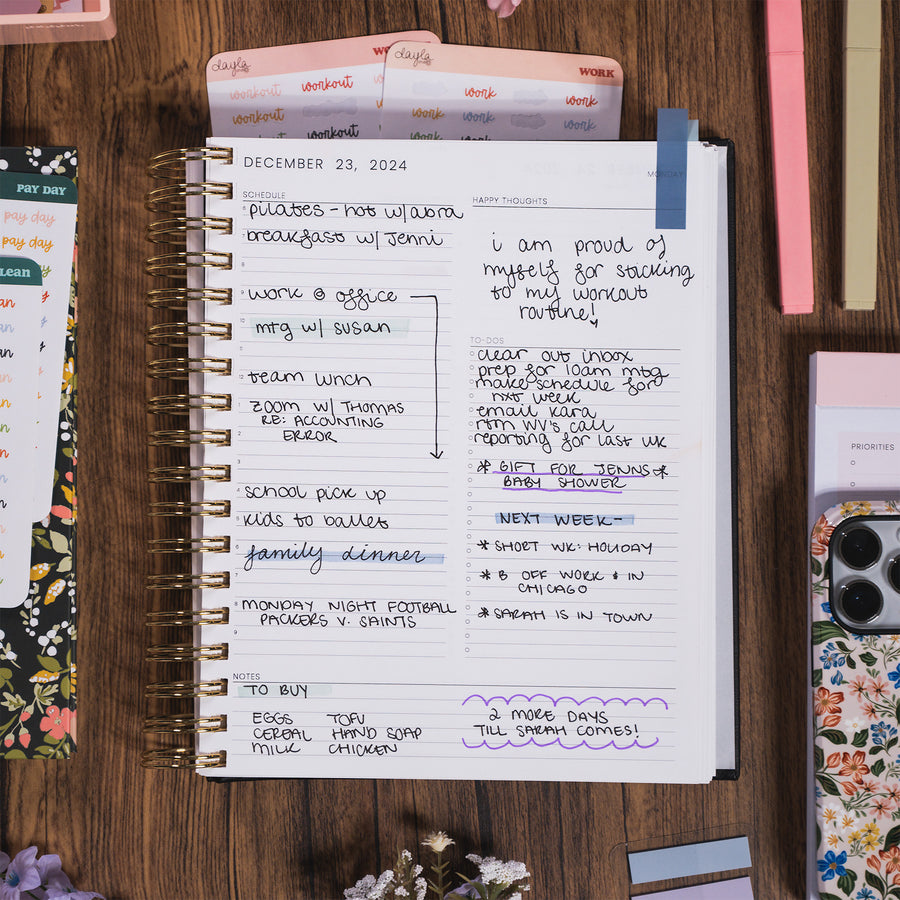 dayla
WORK
workout
workout
workout
workout
dayla
WORK
work
work
work
work
work
work
PAY DAY
pay day
pay day
DECEMBER 23, 2024
MONDAY
SCHEDULE
pilates - hot w/ abra
breakfast w/ Jenni
work @ office
mtg w/ susan
team lunch
ZOOM W/ THOMAS
RE: ACCOUNTING
ERROR
school pick up
kids to ballet
family dinner
MONDAY NIGHT FOOTBALL
PACKERS V. SAINTS
HAPPY THOUGHTS
i am proud of
myself for sticking
to my workout
routine!
TO-DOS
clear out inbox
prep for 10am mtg
make schedule for
nxt week
email kara
rtrn WV's call
reporting for last wk
* GIFT FOR JENNS *
BABY SHOWER
NEXT WEEK-
* SHORT WK: HOLIDAY
* B OFF WORK & IN
CHICAGO
* SARAH IS IN TOWN
NOTES
TO BUY
EGGS TOFU
CEREAL HAND SOAP
MILK CHICKEN
2 MORE DAYS
TILL SARAH COMES!
PRIORITIES